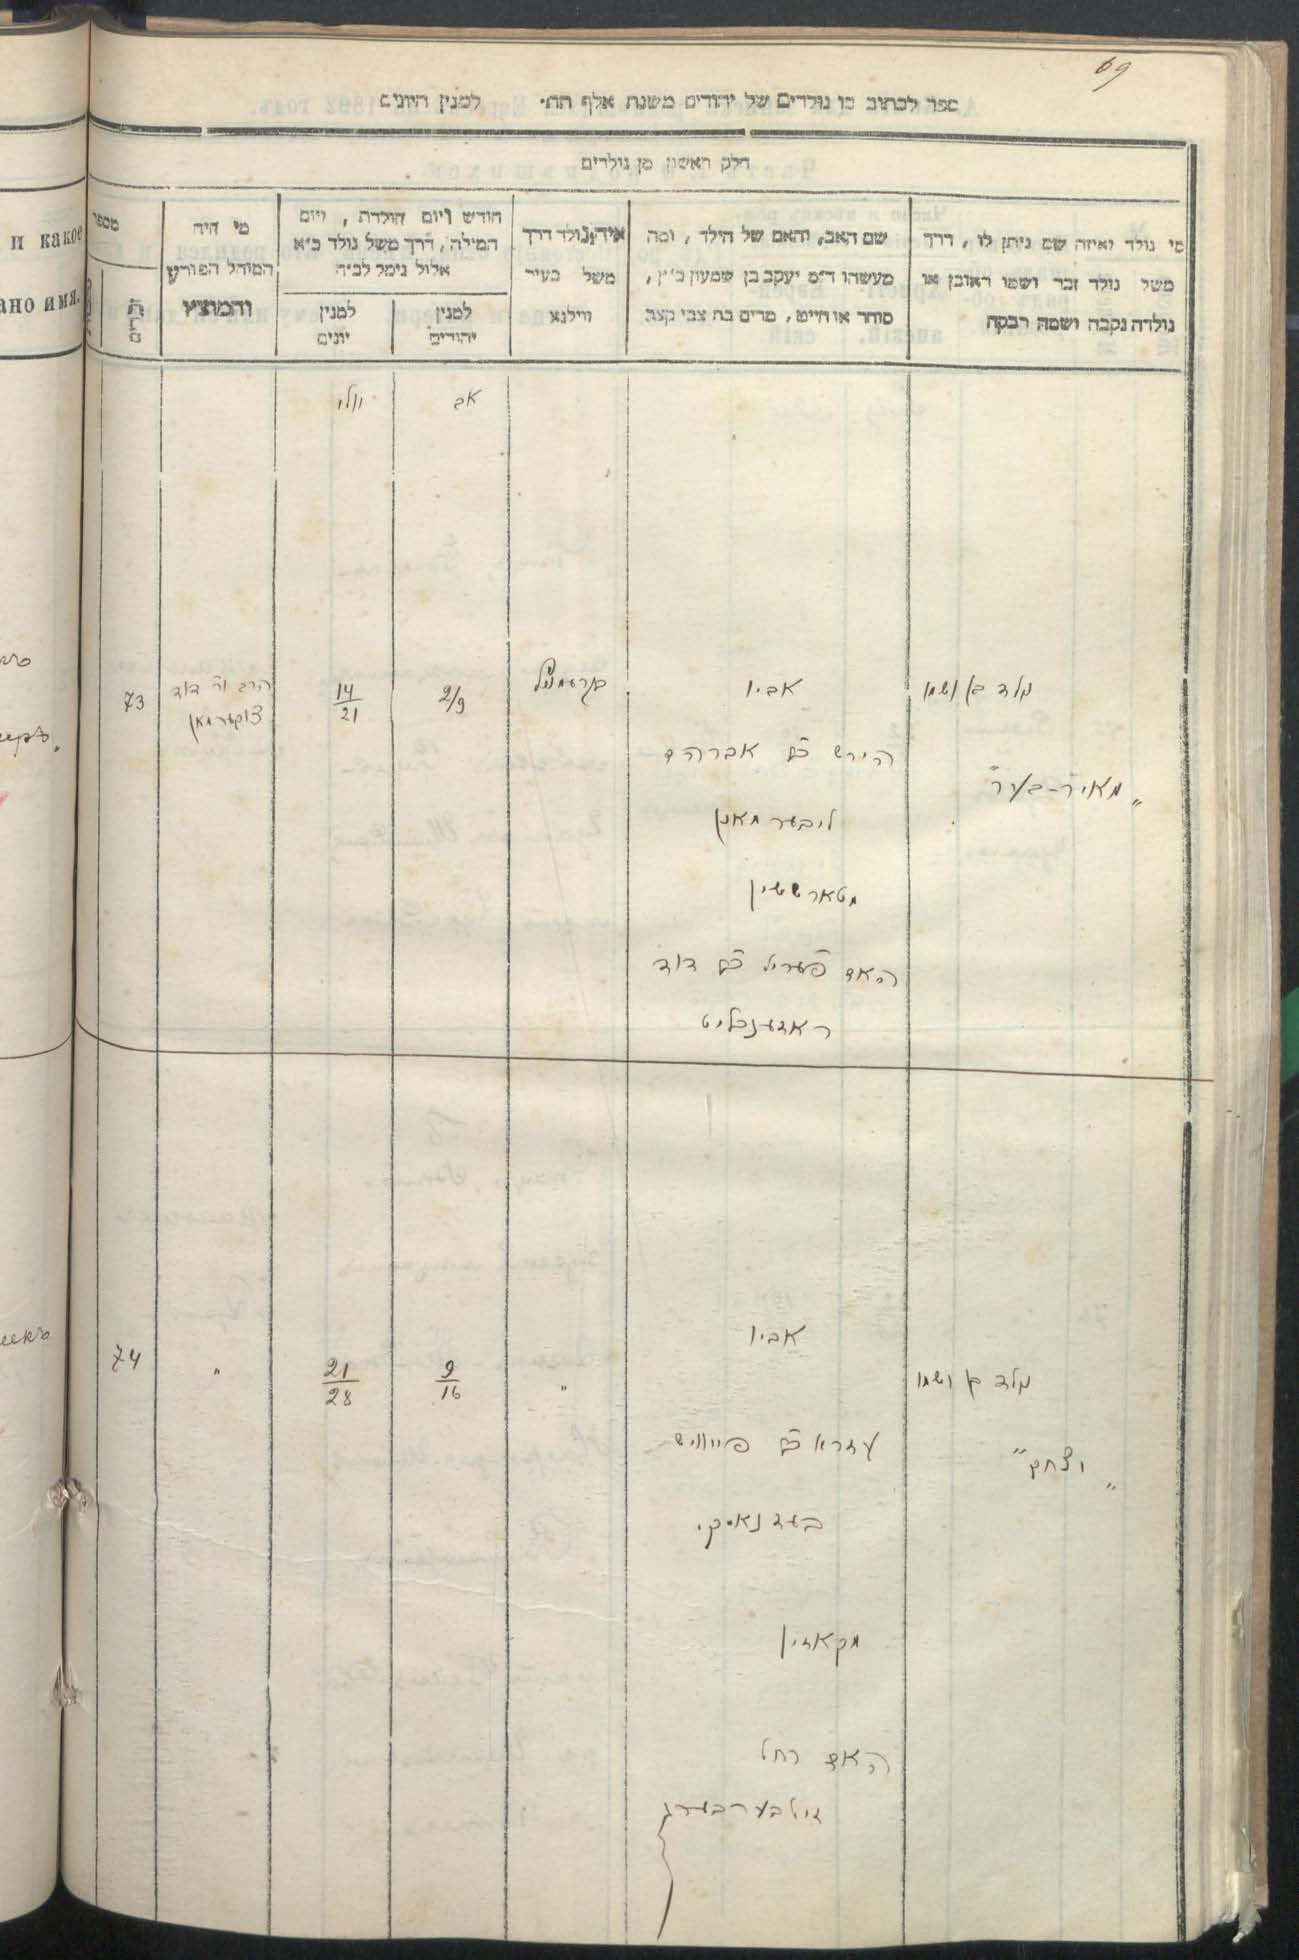 69
ספר לכתוב בו נולדים של יהודים משנת אלף תת׳ למנין היונים
חלק ראשון מן נולדים
מי נולד ואיזה שם ניתן לו, דרך
משל נולד זכר ושמו ראובן או
נולדה נקבה ושמה רבקה
שם האב, והאם של הילד, ומה
מעשהו ד״מ יעקב בן שמעון כ״ץ,
סוחר או חייט, מרים בת צבי קצב
איה נולד דרך
משל בעיר
ווילנא
חודש ויום הולדת, ויום
המילה, דרך משל נולד כ״א
אלול נימל לב״ה
למנין
יהודים
למנין
יונים
מי היה
המוהל הפורע
והמוצץ
מספר
אב
יולי
נולד בן ושמו
"מאיר-בער"
אביו
הירש ב״ר אברהם
ליבערמאן
האם פעריל ב״ר דוד
2/9
14
21
הרב ור׳ דוד
צוקערמאן
73
נולד בן ושמו
"יצחק"
אביו
עזרא ב״ר פייוויש
מקאזין
האם רחל
זילבערבערג
"
9
16
21
28
"
74
и какое
ано имя.